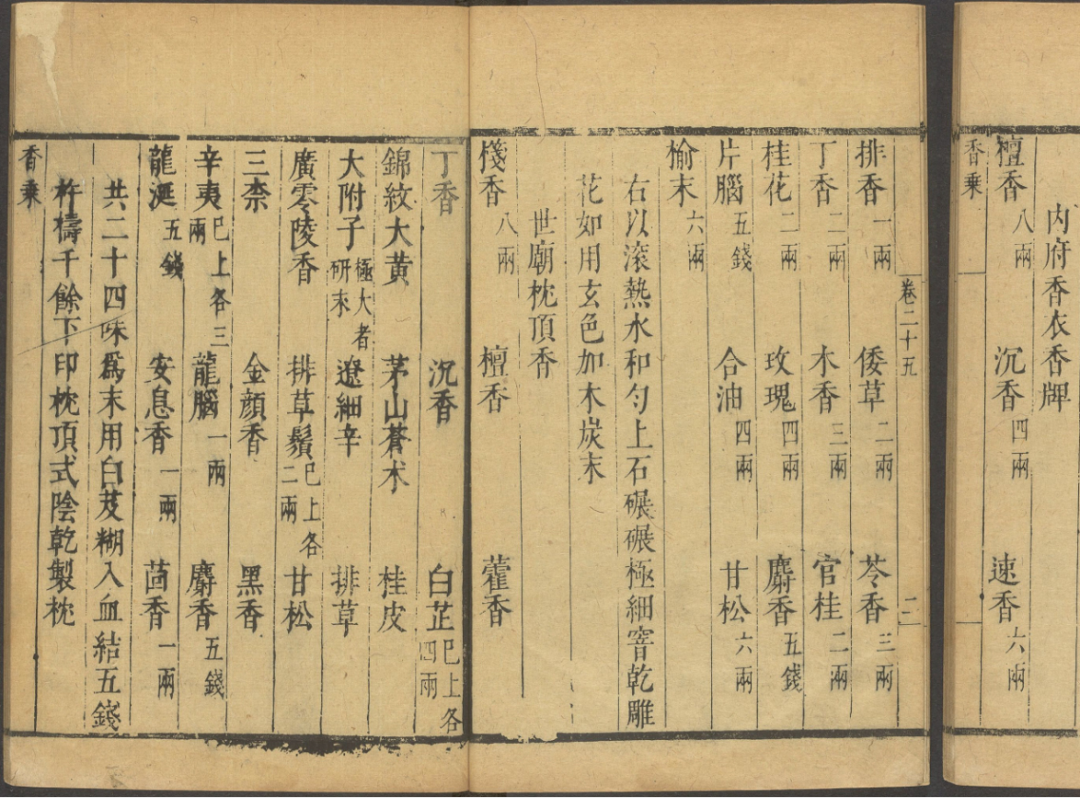 内府香衣香牌
檀香八兩 沉香四兩 速香六兩
香乗
卷二十五 二
排香一兩 倭草二兩 苓香三兩
丁香二兩 木香三兩 官桂二兩
桂花二兩 玫瑰四兩 麝香五錢
片腦五錢 合油四兩 甘松六兩
榆末六兩
右以滚熱水和勻上石碾碾極細窨乾雕
花如用玄色加木炭末
世廟枕頂香
棧香八兩 檀香 藿香
丁香 沉香 白芷已上各四兩
錦紋大黄 茅山蒼术 桂皮
大附子極大者研末 遼細辛 排草
廣零陵香 排草鬚已上各二兩 甘松
三柰 金顔香 黑香
辛夷已上各三兩 龍腦一兩 麝香五錢
龍涎五錢 安息香一兩 茴香一兩
共二十四味爲末用白芨糊入血結五錢
杵擣千餘下印枕頂式陰乾製枕
香乗